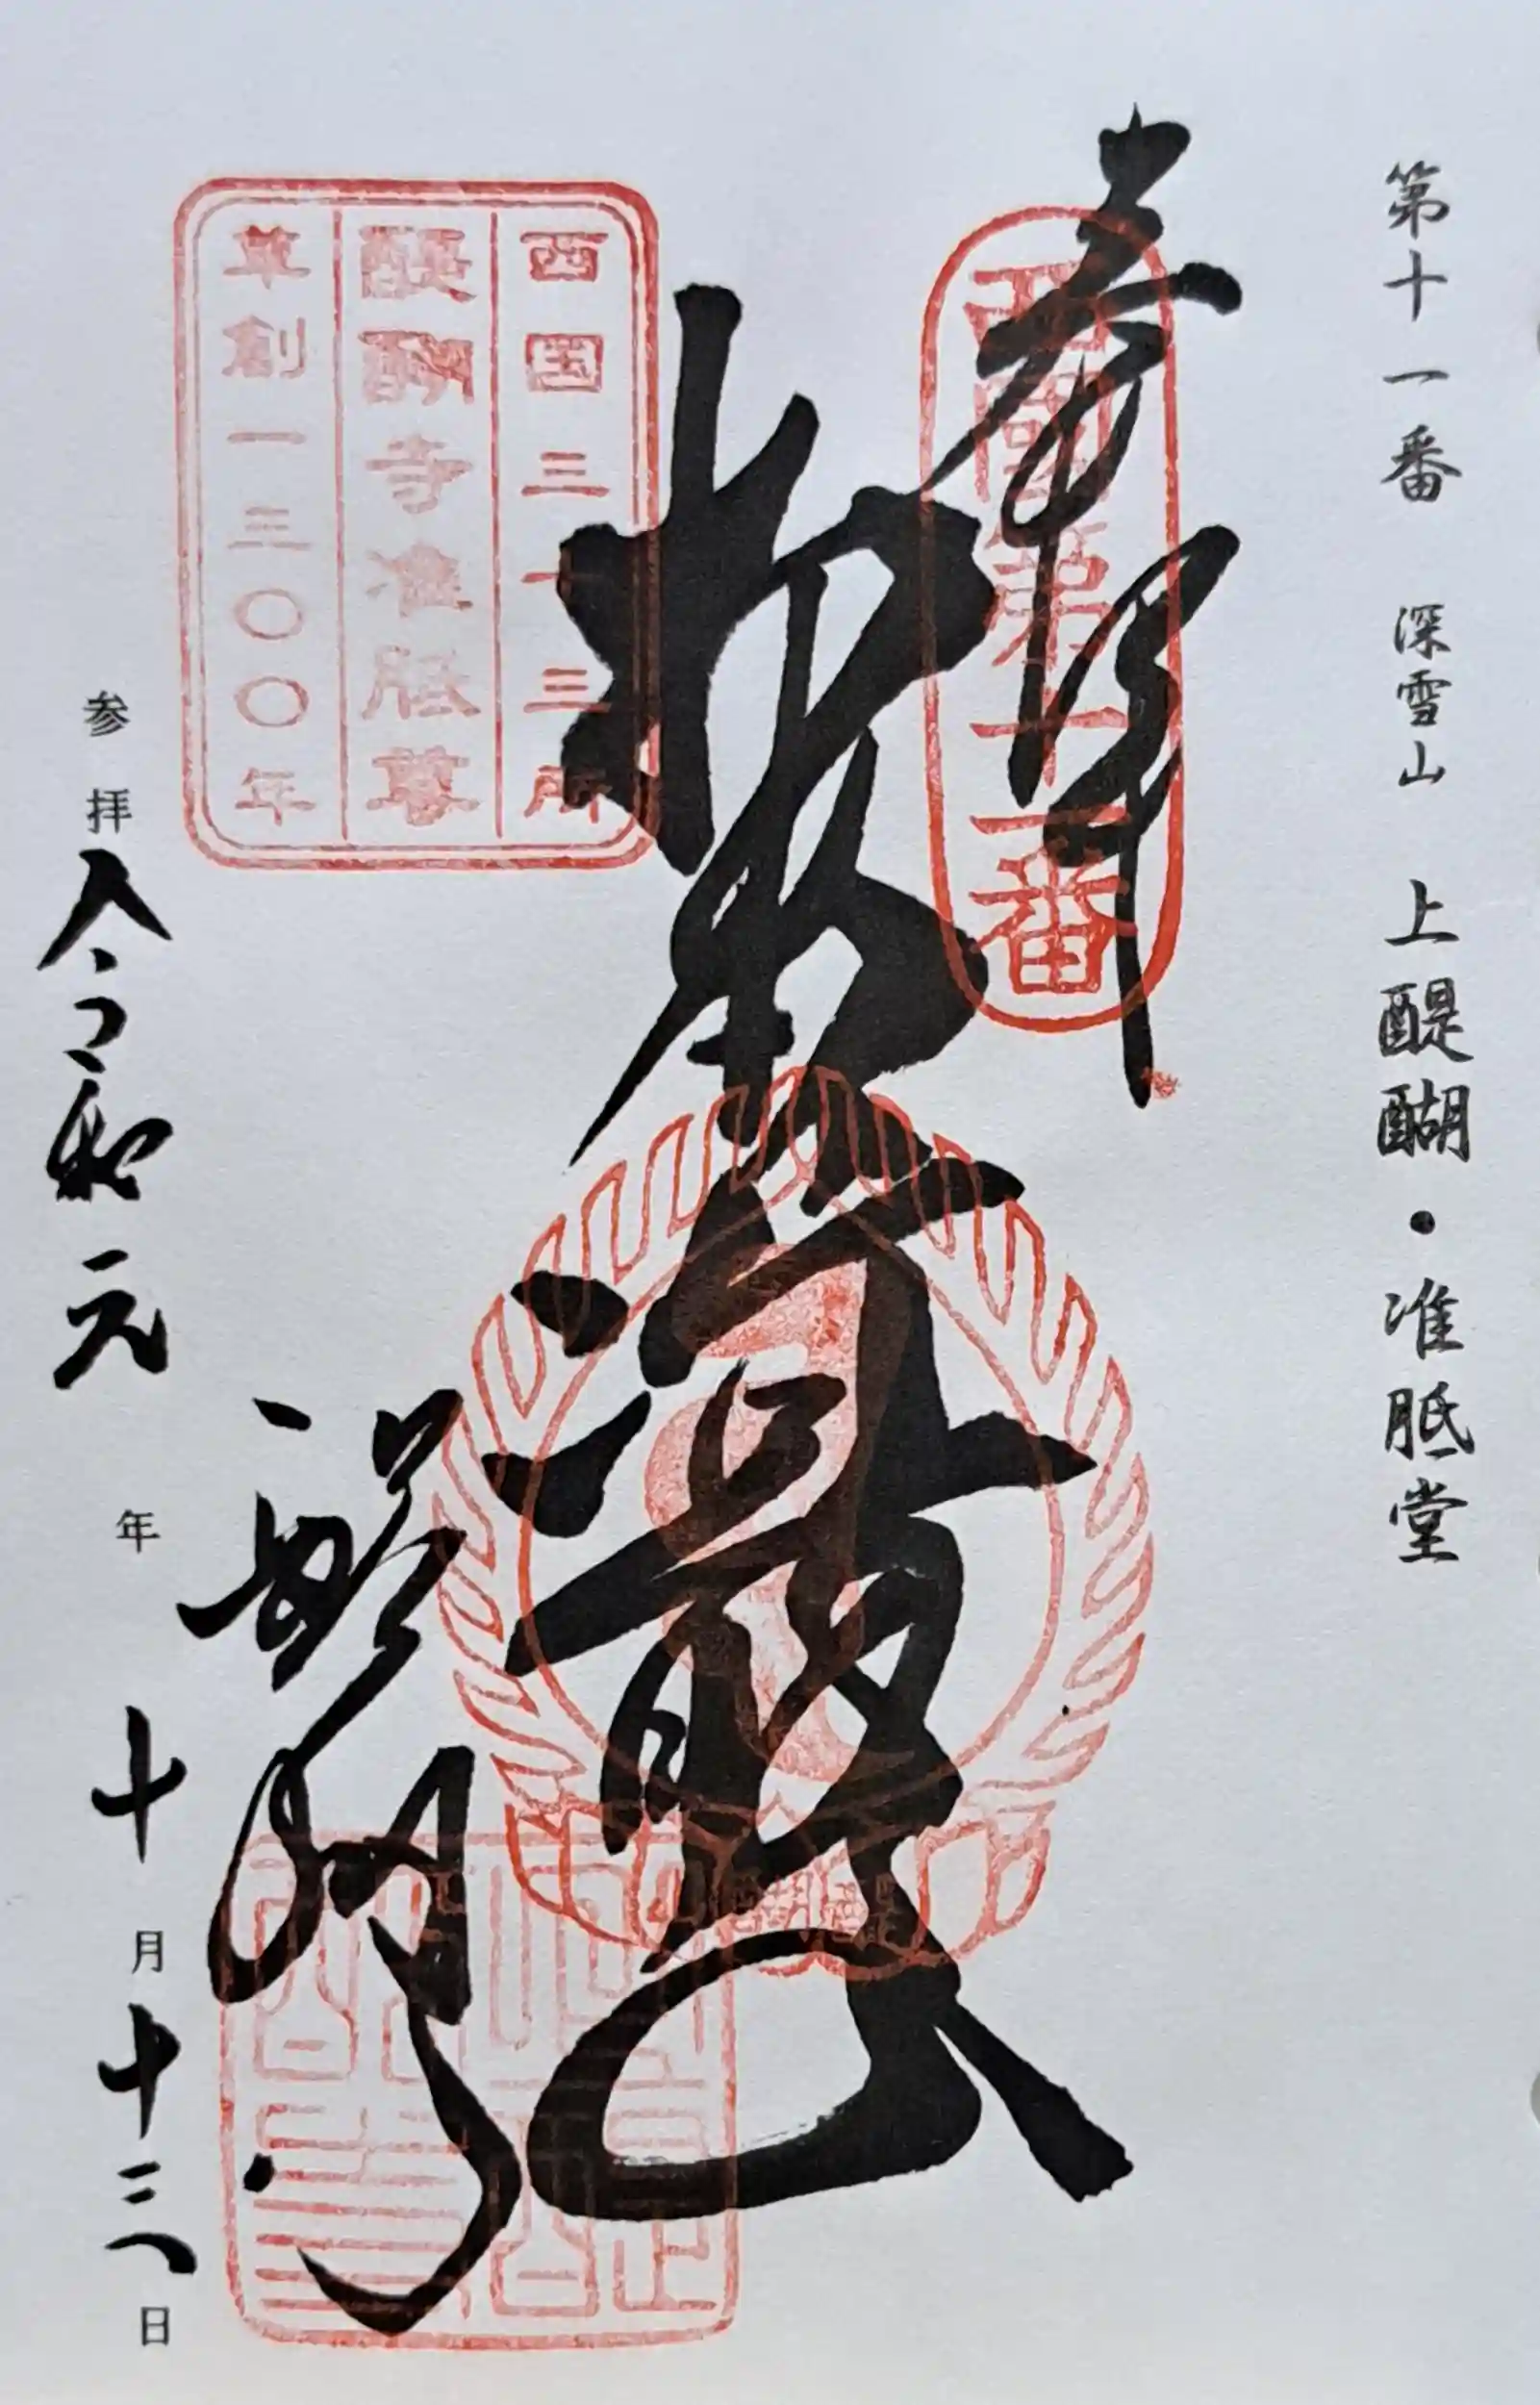 第十一番 深雪山 上醍醐・准胝堂
奉拝
西國第十一番
西国三十三所
醍醐寺准胝尊
草創一三〇〇年
醍醐寺
参拝 令和元年十月十三日